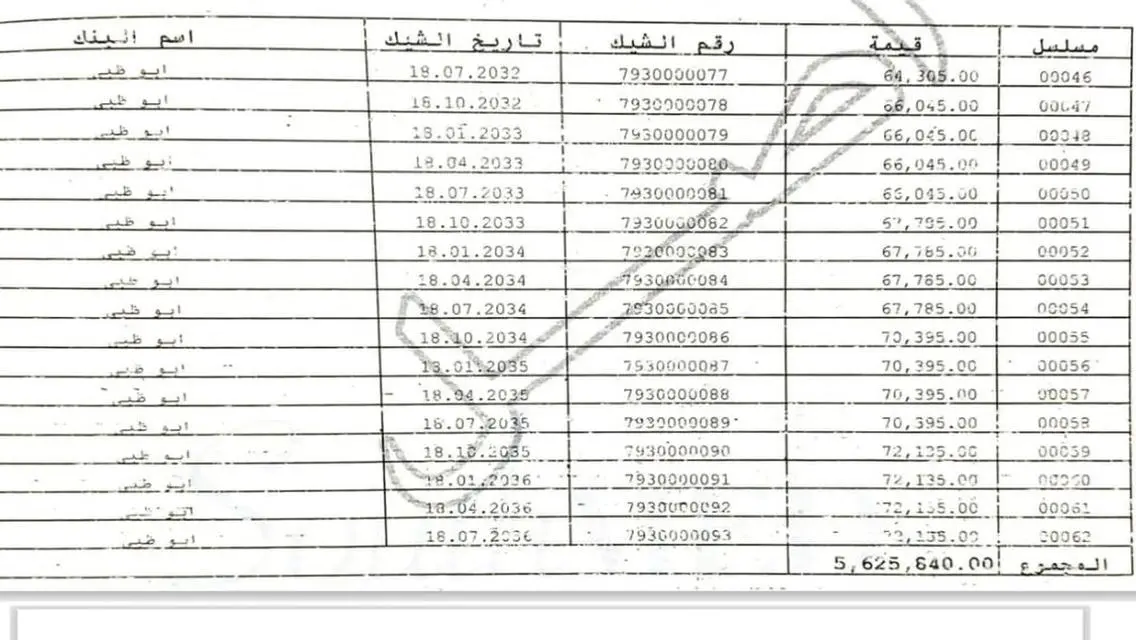 مسلسل قيمة رقم الشيك تاريخ الشيك اسم البنك
00046 64,305.00 7930000077 18.07.2032 ابو ظبى
00047 66,045.00 7930000078 18.10.2032 ابو ظبى
00048 66,045.00 7930000079 18.01.2033 ابو ظبى
00049 66,045.00 7930000080 18.04.2033 ابو ظبى
00050 66,045.00 7930000081 18.07.2033 ابو ظبى
00051 67,785.00 7930000082 18.10.2033 ابو ظبى
00052 67,785.00 7930000083 18.01.2034 ابو ظبى
00053 67,785.00 7930000084 18.04.2034 ابو ظبى
00054 67,785.00 7930000085 18.07.2034 ابو ظبى
00055 70,395.00 7930000086 18.10.2034 ابو ظبى
00056 70,395.00 7930000087 18.01.2035 ابو ظبى
00057 70,395.00 7930000088 18.04.2035 ابو ظبى
00058 70,395.00 7930000089 18.07.2035 ابو ظبى
00059 72,135.00 7930000090 18.10.2035 ابو ظبى
00060 72,135.00 7930000091 18.01.2036 ابو ظبى
00061 72,135.00 7930000092 18.04.2036 ابو ظبى
00062 72,135.00 7930000093 18.07.2036 ابو ظبى
المجموع 5,625,840.00